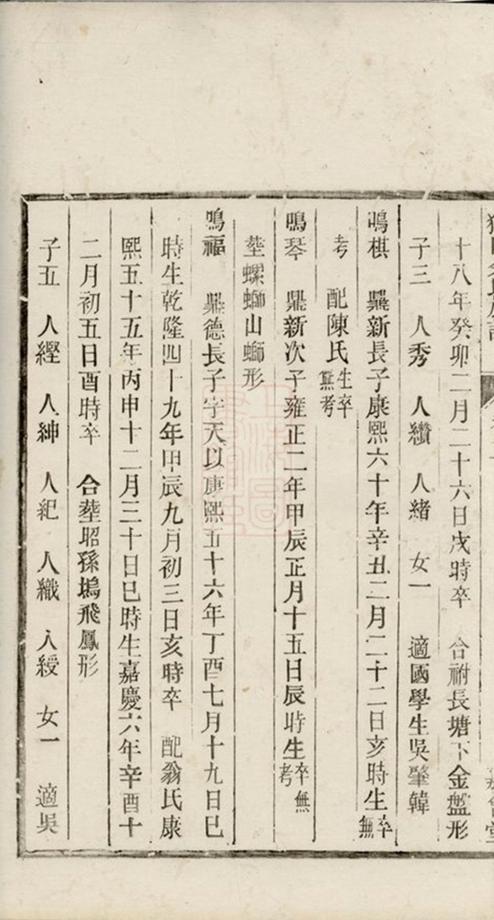 十八年癸卯二月二十六日戌時卒 合祔長塘下金盤形
子三 人秀 人纘 人緒 女一 適國學生吳肇韓
鳴棋 鼎新長子康熙六十年辛丑二月二十二日亥時生卒無
考 配陳氏生卒無考
鳴琴 鼎新次子雍正二年甲辰正月十五日辰時生卒無考
塟螺螄山螄形
鳴福 鼎德長子字天以康熙五十六年丁酉七月十九日巳
時生乾隆四十九年甲辰九月初三日亥時卒 配翁氏康
熙五十五年丙申十二月三十日巳時生嘉慶六年辛酉十
二月初五日酉時卒 合塟昭孫塢飛鳳形
子五 人經 人紳 人紀 人織 人綬 女一 適吳